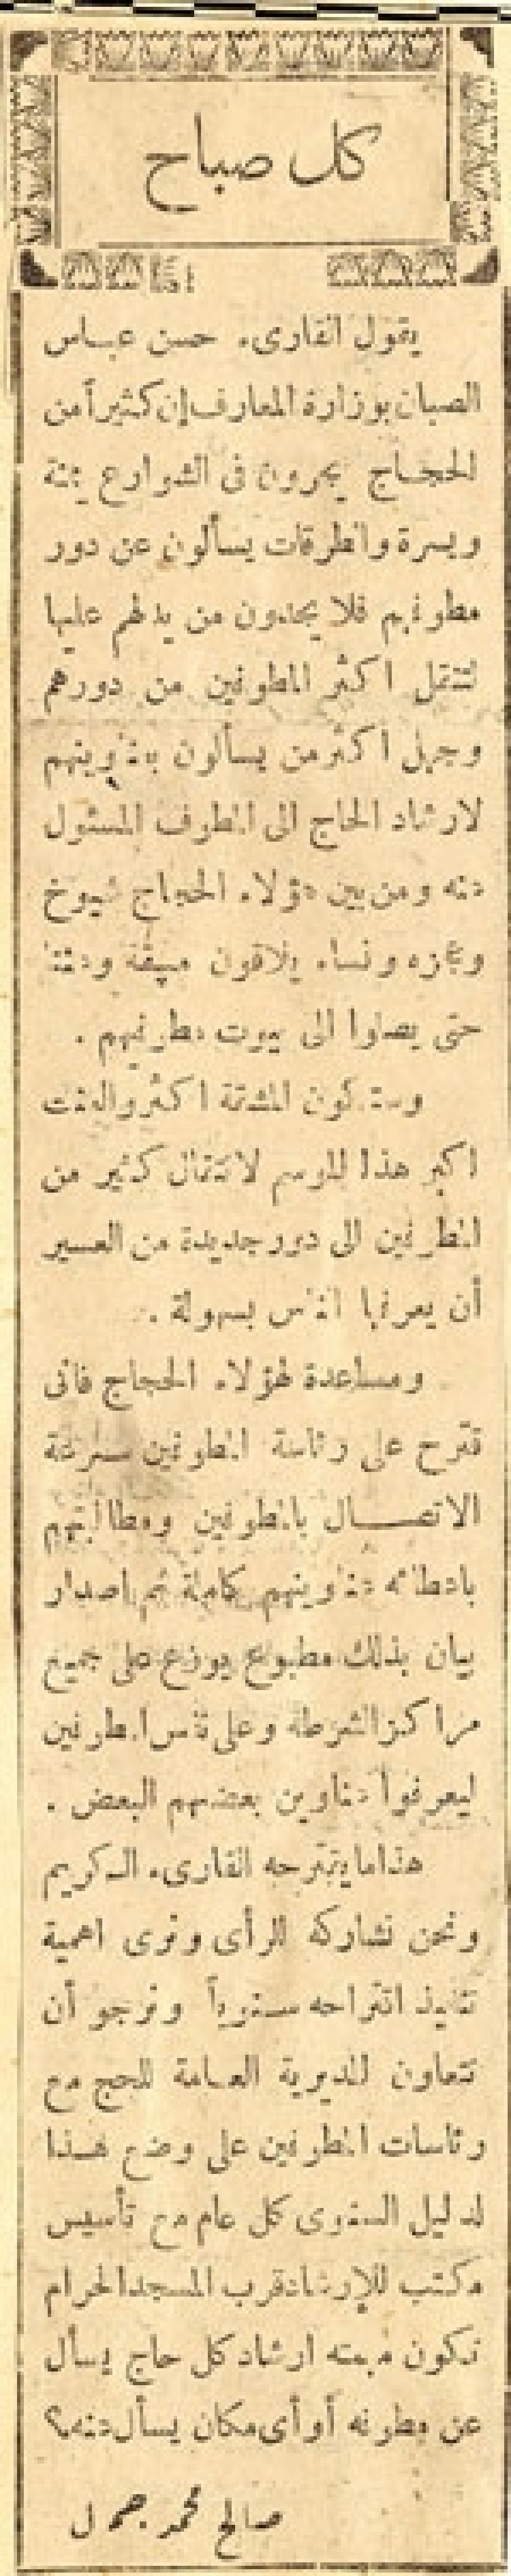 كل صباح
يقول القارىء حسن عباس
الصبان بوزارة المعارف إن كثيراً من
الحجاج يجرون فى الشوارع يمنة
ويسرة والطرقات يسألون عن دور
مطوفيهم فلا يجدون من يدلهم عليها
لتنقل اكثر المطوفين من دورهم
وجهل اكثر من يسألون بعناوينهم
لارشاد الحاج الى المطوف المسئول
عنه ومن بين هؤلاء الحجاج شيوخ
وعجزه ونساء يلاقون مشقة وعنتا
حتى يصلوا الى بيوت مطوفيهم .
وستكون المشقة اكثر والعنت
اكبر هذا الموسم لانتقال كثير من
المطوفين الى دور جديدة من العسير
أن يعرفها الناس بسهولة .
ومساعدة لهؤلاء الحجاج فانى
نقترح على رئاسة المطوفين سرعة
الاتصال بالمطوفين ومطالبتهم
باعطائه عناوينهم كاملة ثم اصدار
بيان بذلك مطبوع يوزع على جميع
مراكز الشرطة وعلى نفس المطوفين
ليعرفوا عناوين بعضهم البعض .
هذا ما يقترحه القارىء الكريم
ونحن نشاركه الرأى ونرى اهمية
تنفيذ اقتراحه سنوياً ونرجو أن
تتعاون المديرية العامة للحج مع
رئاسات المطوفين على وضع هذا
الدليل السنوى كل عام مع تأسيس
مكتب للإرشاد قرب المسجد الحرام
تكون مهمته ارشاد كل حاج يسأل
عن مطوفه أو أى مكان يسأل عنه؟
صالح محمد جمال